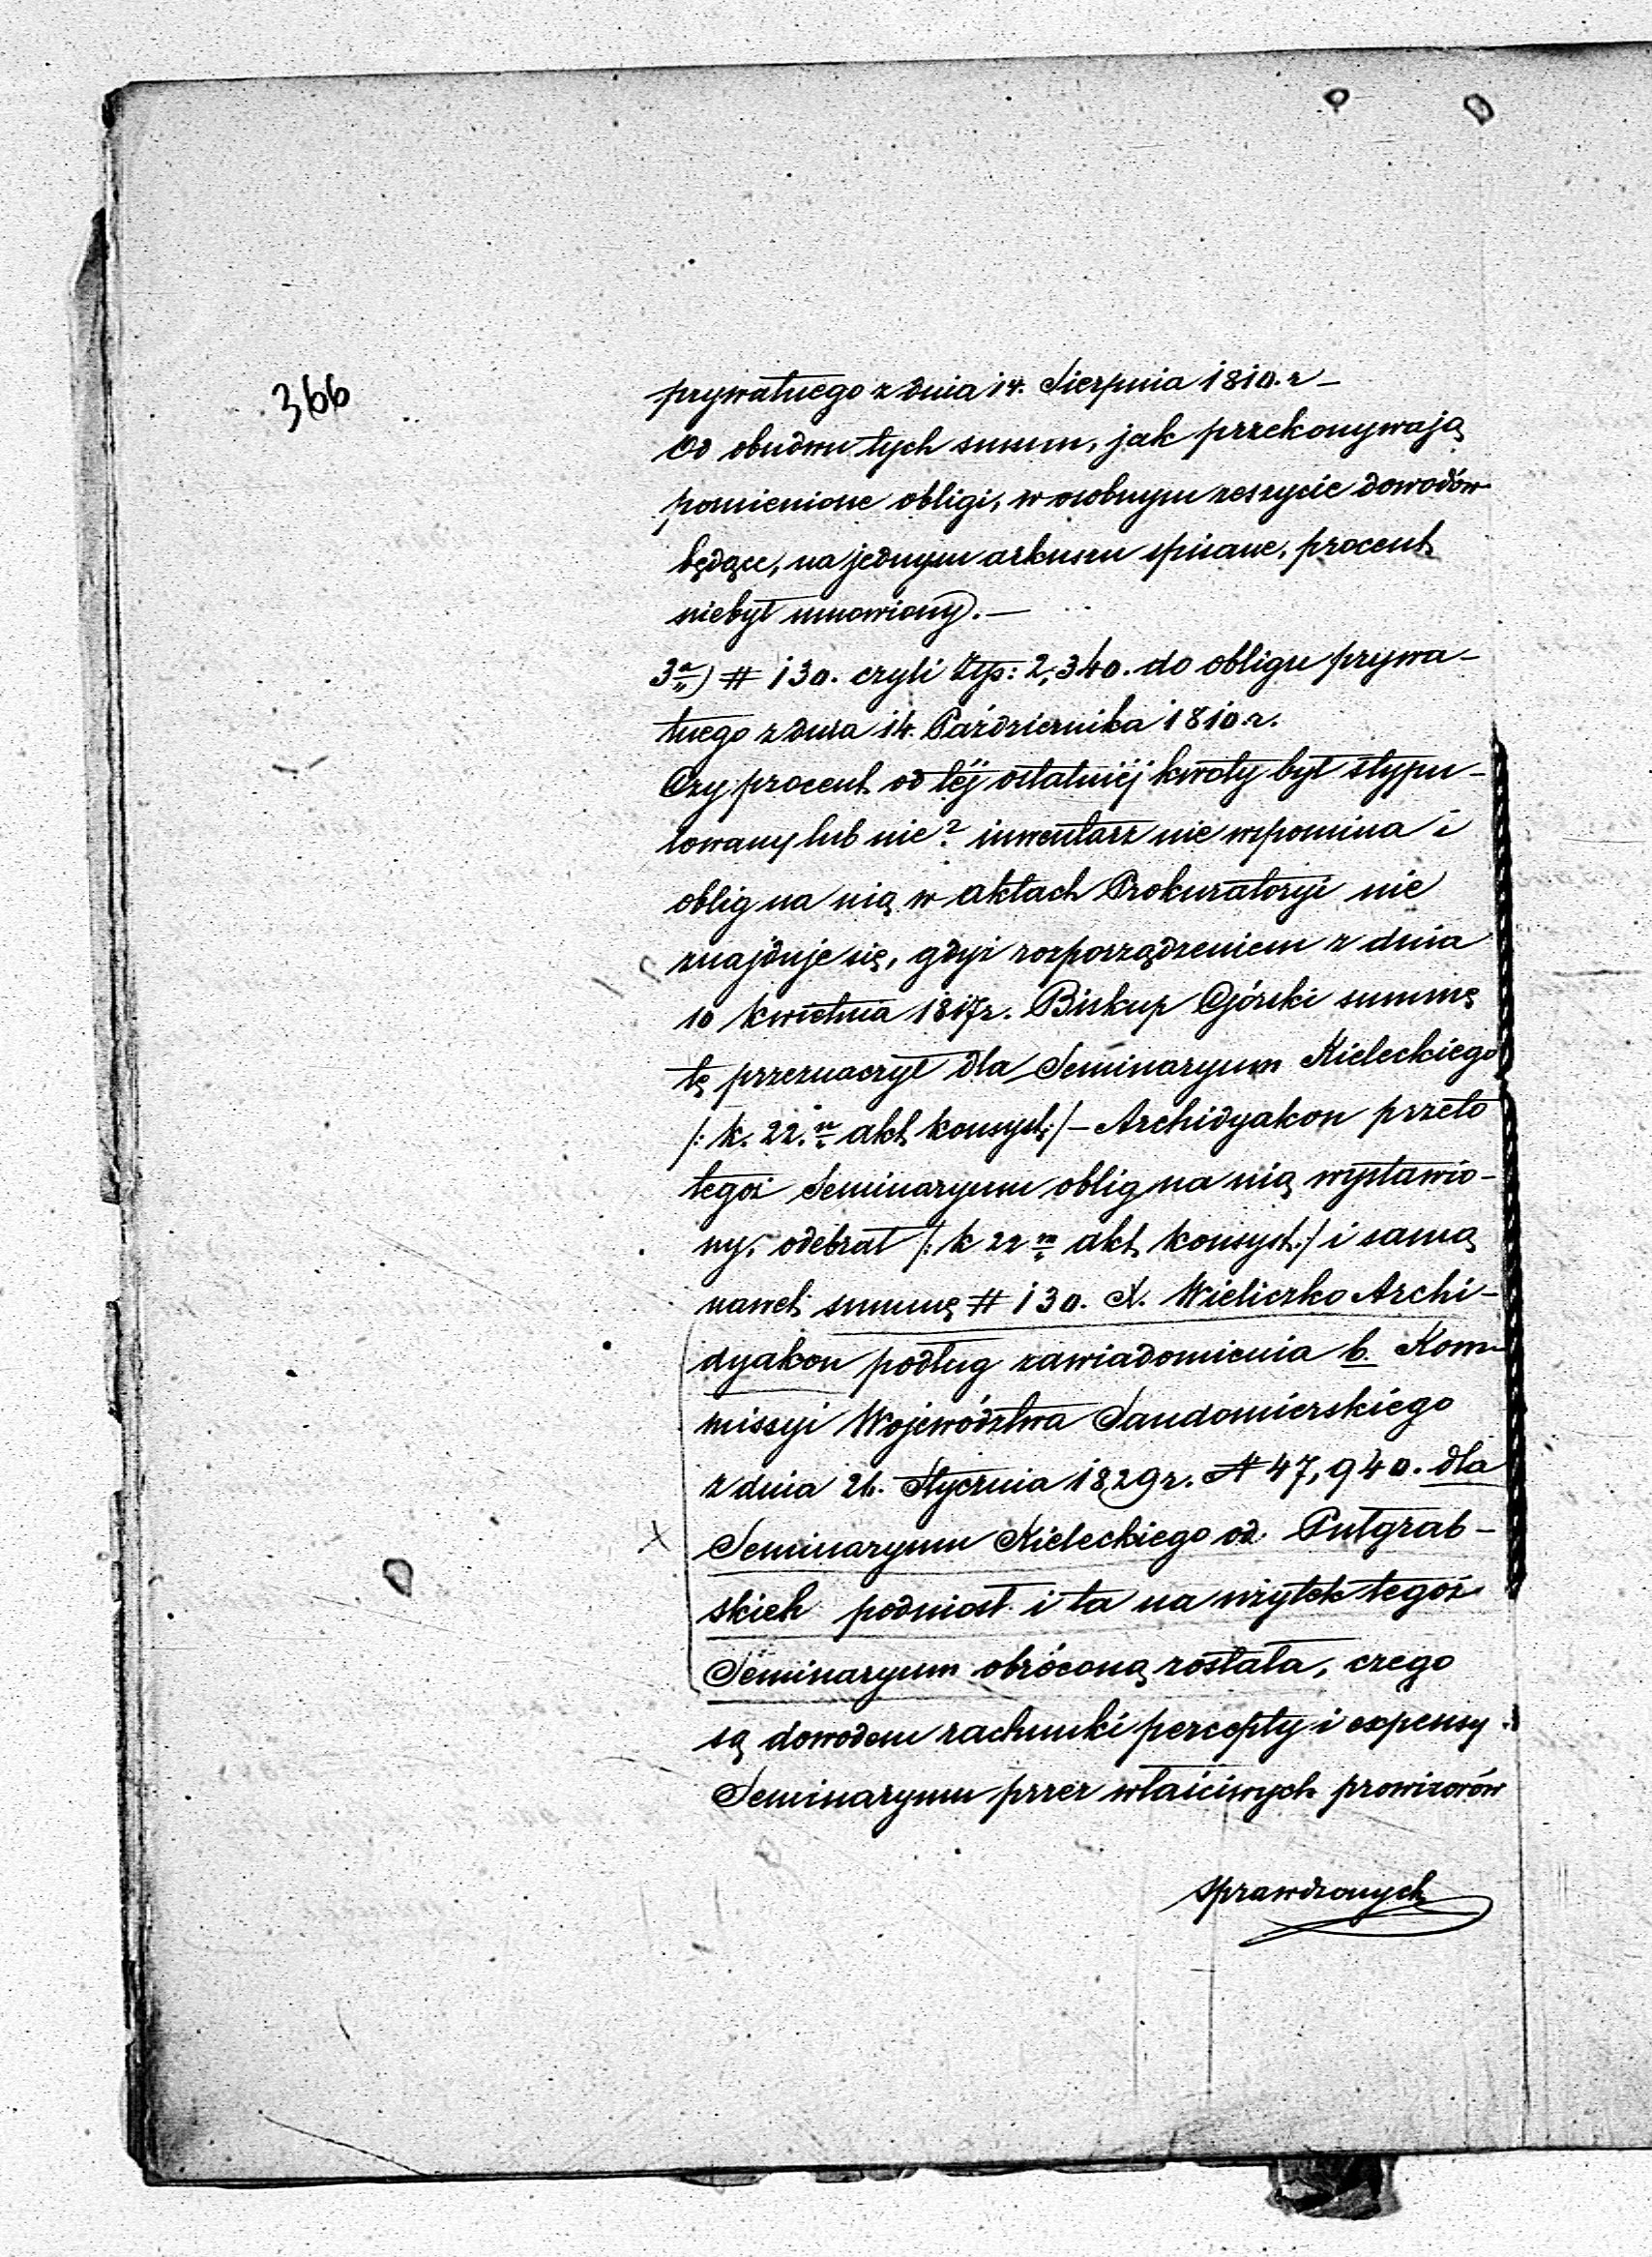 366
prywatnego z dnia 14. Sierpnia 1810. r –
Od obudwu tych summ, jak przekonywają
pomienione obligi, w osobnym zeszycie dowodów
będące, na jednym arkuszu spisane, procent
niebył umowiony. –
3a) # 130. czyli Złp: 2,340. do obligu prywa-
tnego z dnia 14. Października 1810 r.
Czy procent od téj ostatniéj kwoty był stypu-
lowany lub nie? inwentarz nie wspomina i
oblig na nią w aktach Prokuratoryi nie
znajduje się, gdyż rozporządzeniem z dnia
10 kwietnia 1817 r. Biskup Górski summę
tę przeznaczył dla Seminaryum Kieleckiego
/: k. 22. akt konsyst:/ – Archidyakon przeto
tegoż Seminaryum oblig na nią wystawio-
ny, odebrał /: k 22 akt konsyst:/ i samą
nawet summę # 130. X. Wieliczko Archi-
dyakon podług zawiadomienia b. Kom-
missyi Województwa Sandomierskiego
z dnia 26. Stycznia 1829 r. N 47,940. dla
Seminaryum Kieleckiego od Putgrab-
skich podniosł i ta na użytek tegoż
Seminaryum obróconą została, czego
są dowodem rachunki percepty i expensy
Seminaryum przez właściwych prowizorów
sprawdzonych